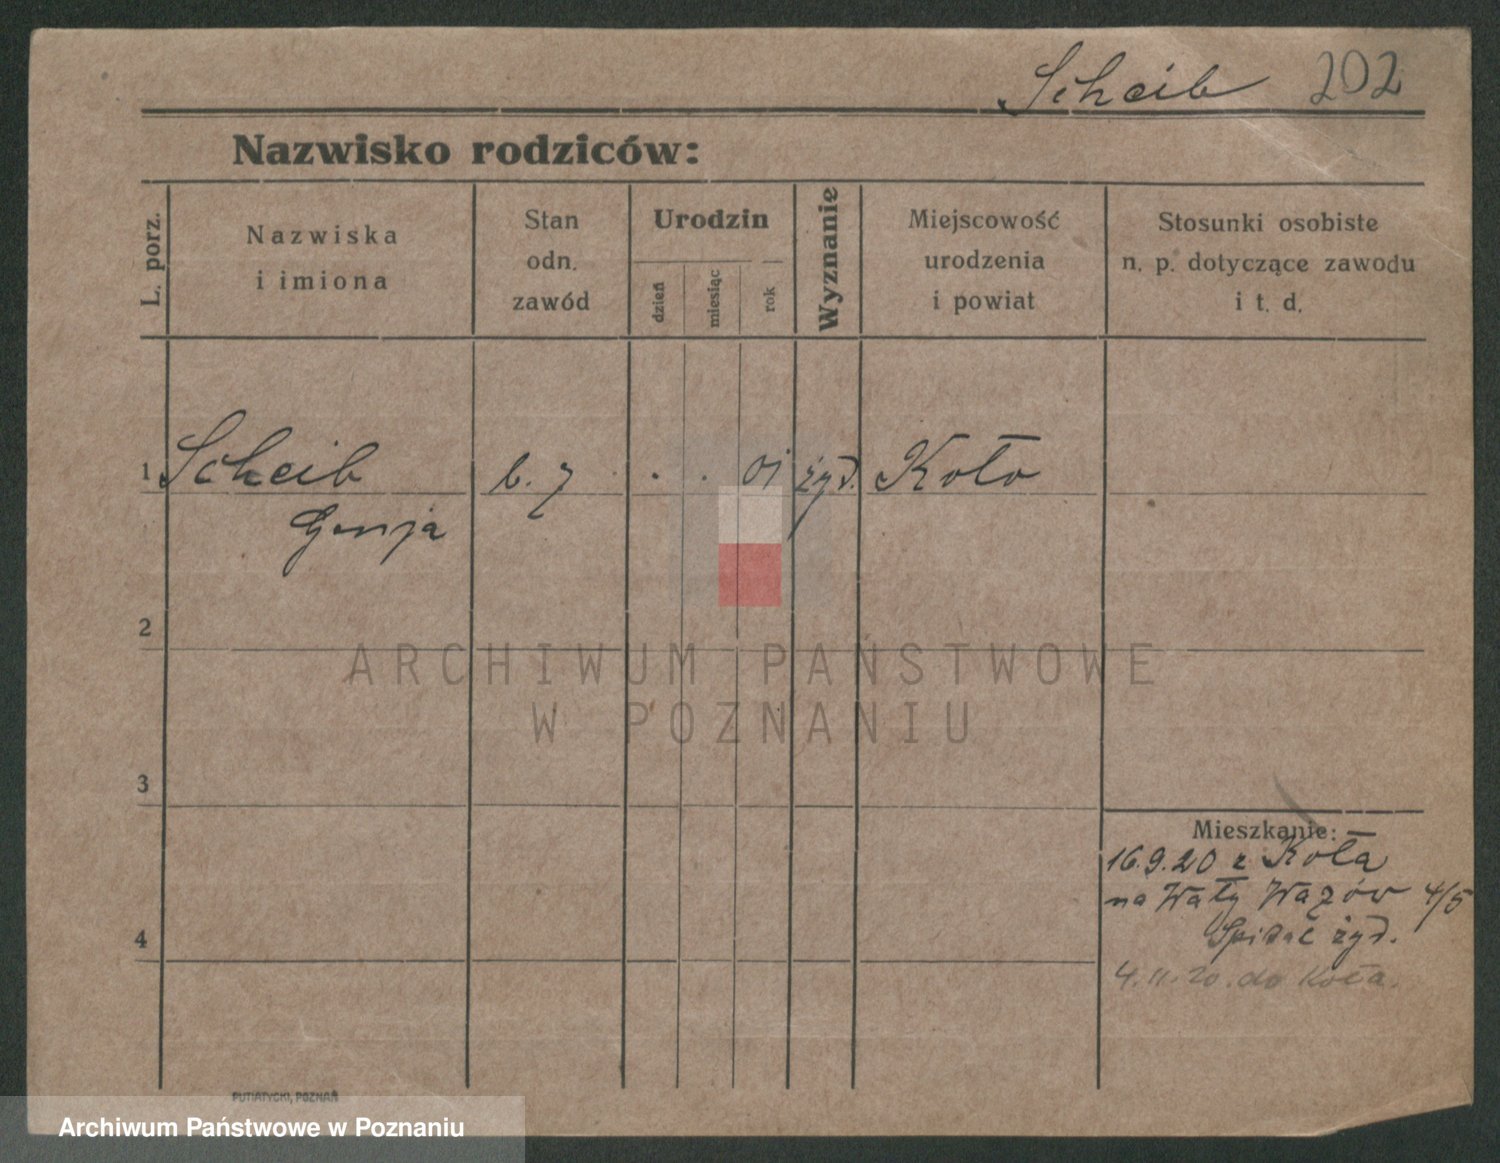 Scheib 202
Nazwisko rodziców:
L. porz.
Nazwiska
i imiona
Stan
odn.
zawód
Urodzin
dzień
miesiąc
rok
Wyznanie
Miejscowość
urodzenia
i powiat
Stosunki osobiste
n. p. dotyczące zawodu
i t. d.
1 Scheib b. z . . 01 żyd. Koło
Genja
2
ARCHIWUM PAŃSTWOWE
W POZNANIU
3
Mieszkanie:
16.9.20 z Koła
na Wały Wazów 4/5
Szpital żyd.
4
4.11.20. do Koła.
PUTIATYCKI, POZNAŃ
Archiwum Państwowe w Poznaniu